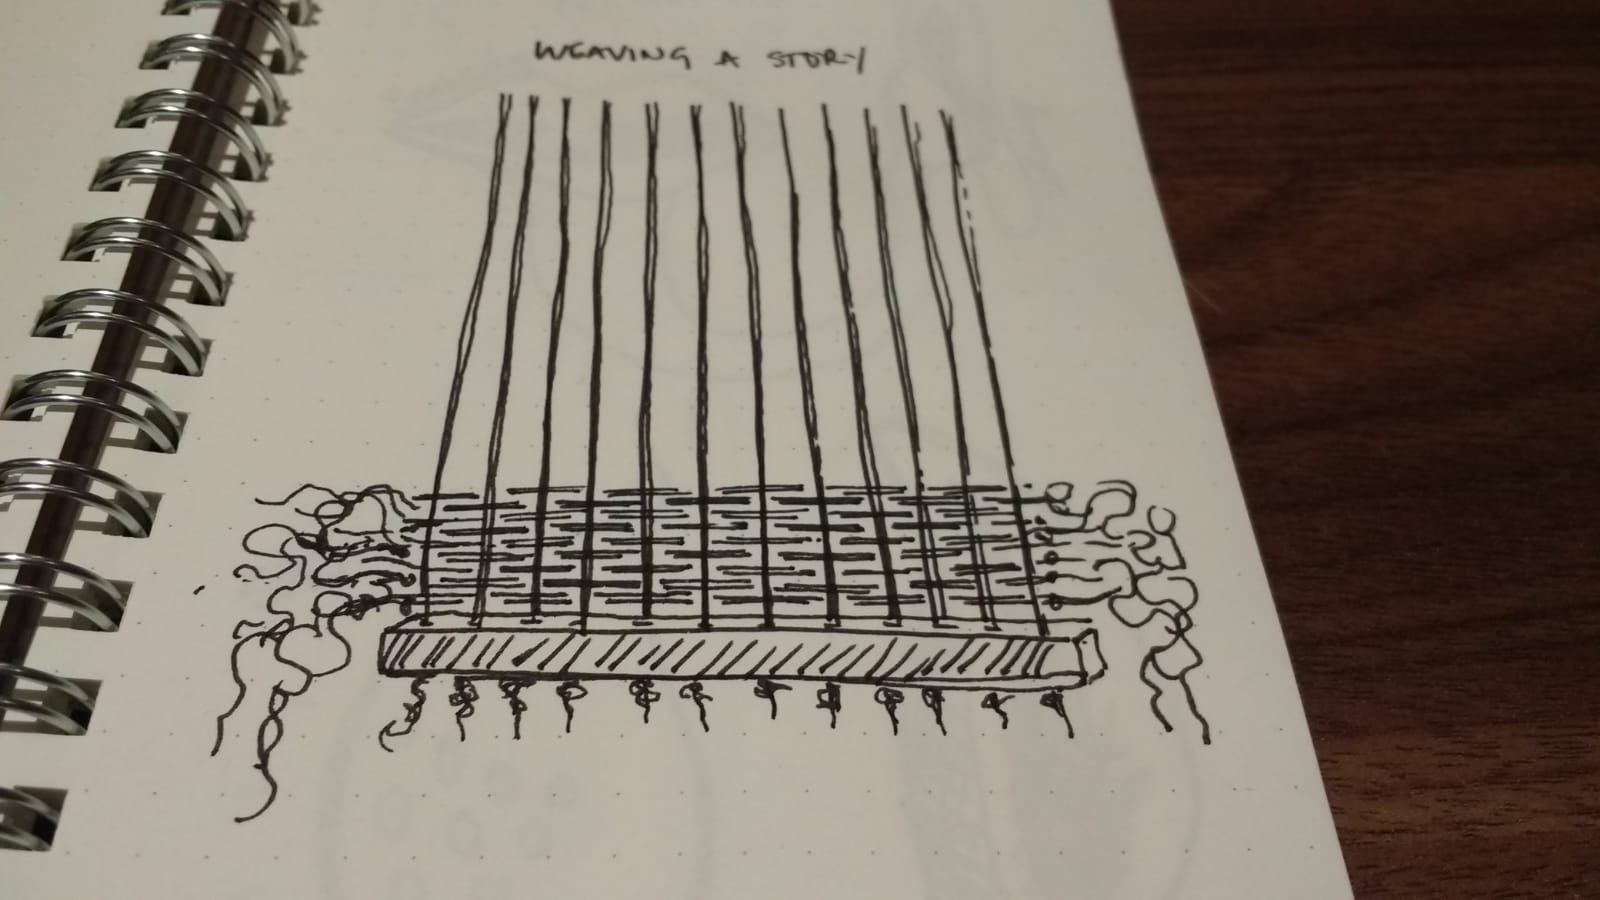 WEAVING A STORY